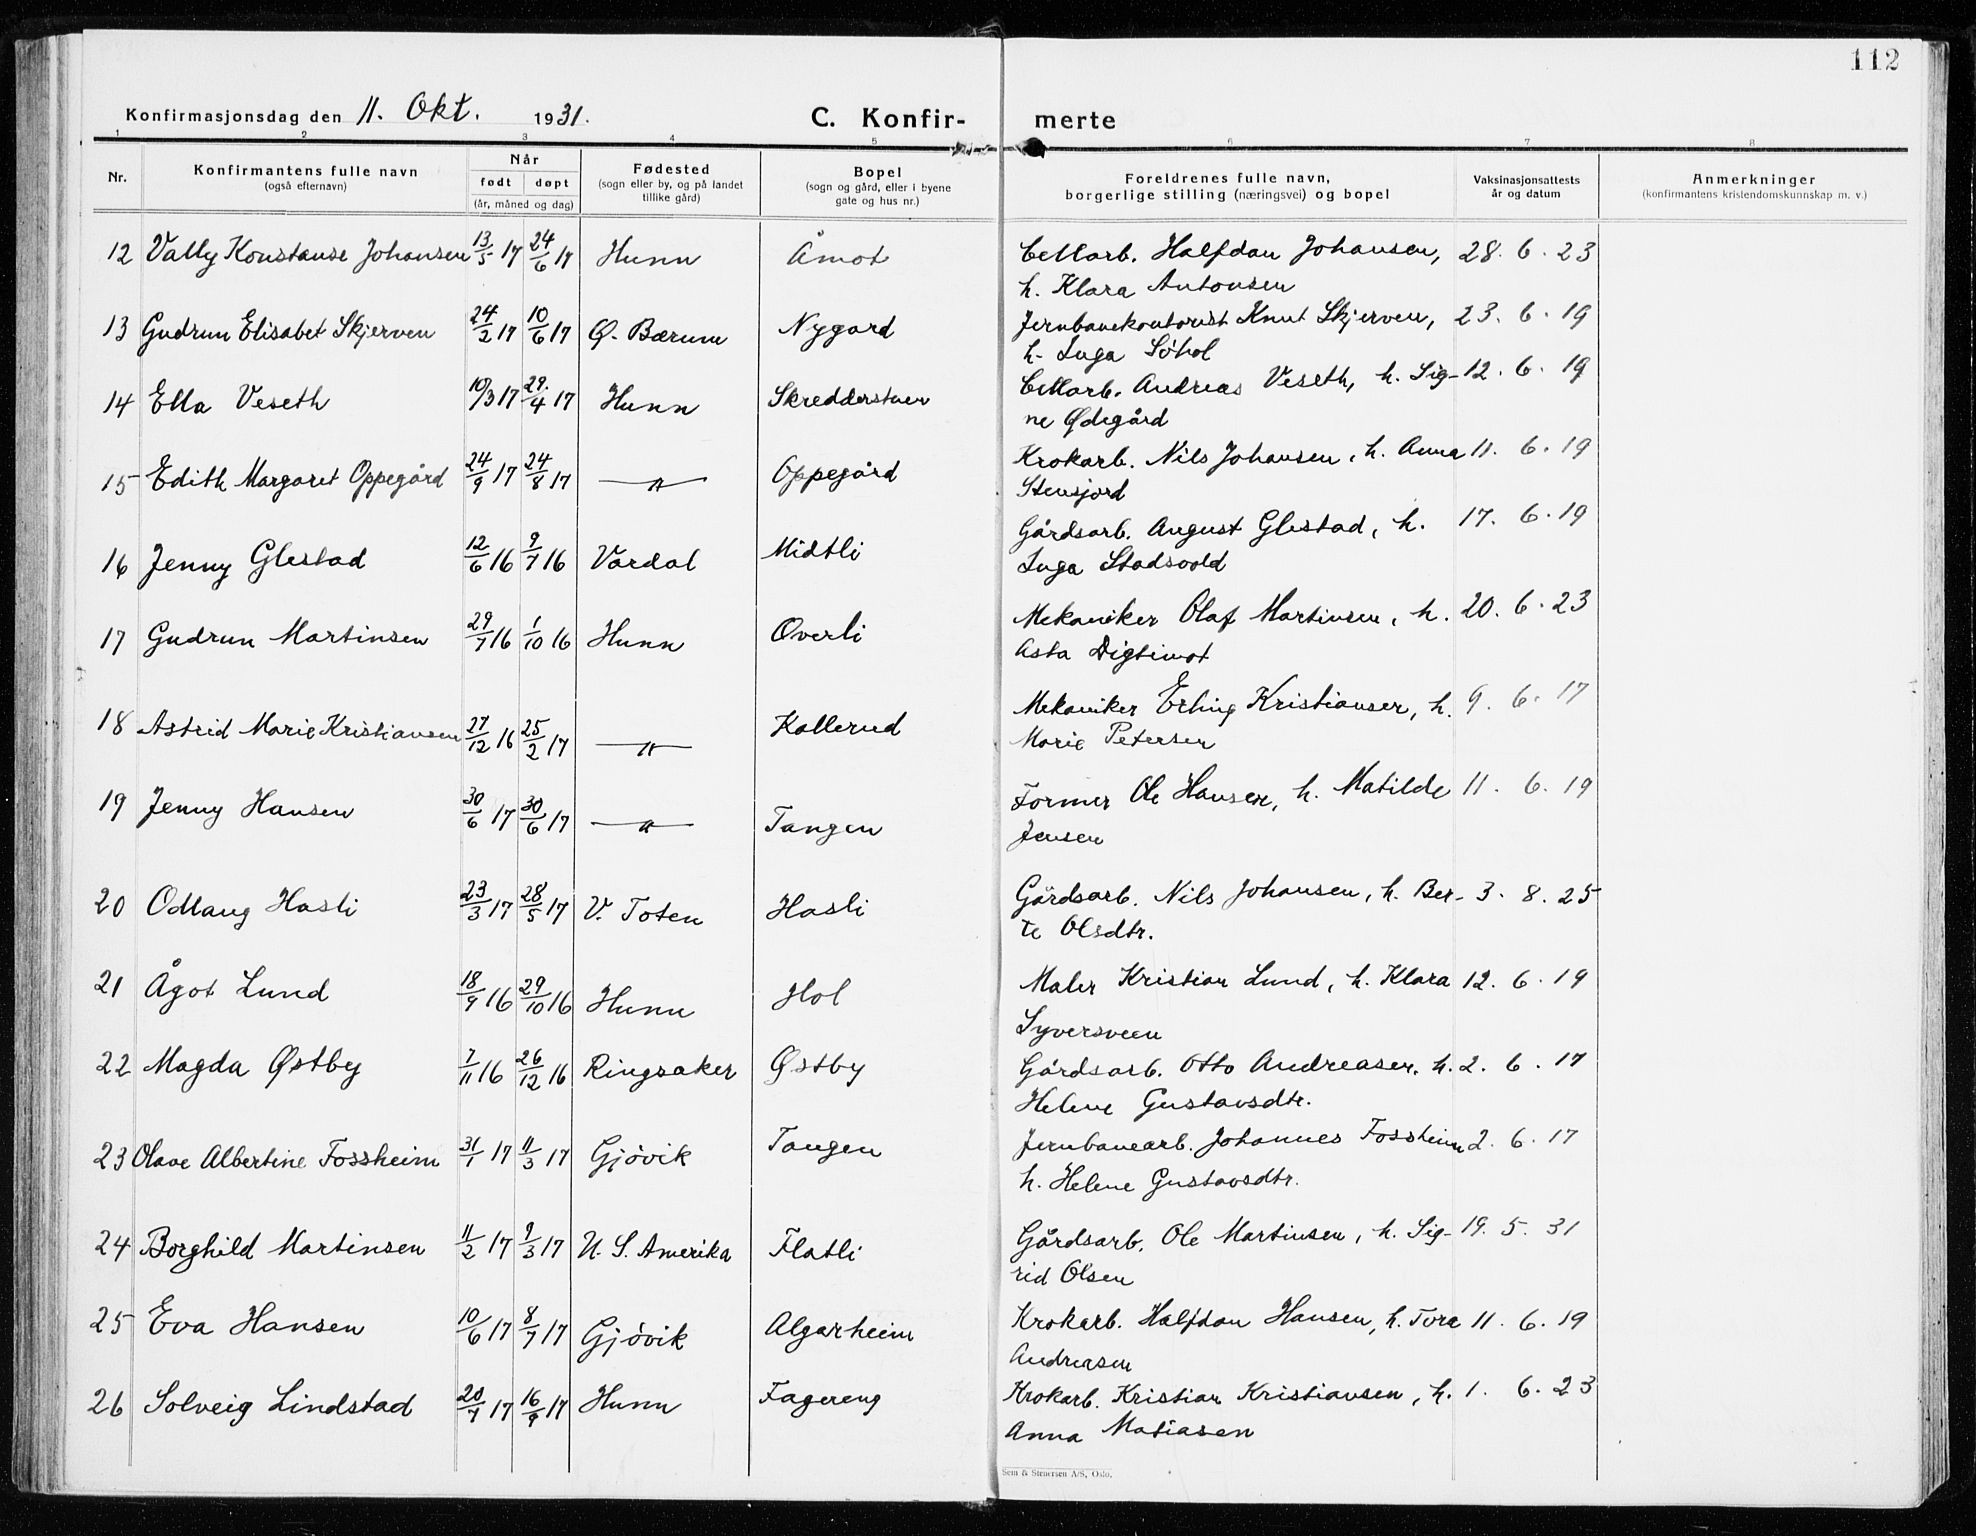 112
Konfirmasjonsdag den 11. Okt. 1931.
C. Konfir- merte
1 2 3 4 5 6 7 8
Nr. Konfirmantens fulle navn (også efternavn) Når født døpt (år, måned og dag) Fødested (sogn eller by, og på landet tillike gård) Bopel (sogn og gård, eller i byene gate og hus nr.) Foreldrenes fulle navn, borgerlige stilling (næringsvei) og bopel Vaksinasjonsattests år og datum Anmerkninger (konfirmantens kristendomskunnskap m. v.)
12 Vally Konstanse Johansen 13/5 17 24/6 17 Hunn Åmot Cellarb. Halfdan Johansen, 28. 6. 23
h. Klara Antonsen
13 Gudrun Elisabet Skjerven 24/2 17 10/6 17 Ø. Bærum Nygard Jernbanekontorist Knut Skjerven, 23. 6. 19
h. Inga Söhol
14 Ella Veseth 10/3 17 29/4 17 Hunn Skredderstuen Cellarb. Andreas Veseth, h. Sig- 12. 6. 19
ne Ødegård
15 Edith Margaret Oppegård 24/9 17 24/8 17 —"— Oppegård Krokarb. Nils Johansen, h. Anna 11. 6. 19
Stensjord
16 Jenny Glestad 12/6 16 9/7 16 Vardal Midtli Gårdsarb. August Glestad, h. 17. 6. 19
Inga Stadsvold
17 Gudrun Martinsen 29/7 16 1/10 16 Hunn Overli Mekaniker Olaf Martinsen, h. 20. 6. 23
Asta Digtimot
18 Astrid Marie Kristiansen 27/12 16 25/2 17 —"— Kallerud Mekaniker Erling Kristiansen, h. 9. 6. 17
Marie Petersen
19 Jenny Hansen 30/6 17 30/6 17 —"— Tangen Former Ole Hansen, h. Matilde 11. 6. 19
Jensen
20 Odlaug Hasli 23/3 17 28/5 17 V. Toten Hasli Gårdsarb. Nils Johansen, h. Ber- 3. 8. 25
te Olsdtr.
21 Ågot Lund 18/9 16 29/10 16 Hunn Hol Maler Kristian Lund, h. Klara 12. 6. 19
Syversveen
22 Magda Østby 7/11 16 26/12 16 Ringsaker Østby Gårdsarb. Otto Andreasen, h. 2. 6. 17
Helene Gustavsdtr.
23 Olave Albertine Fossheim 31/1 17 11/3 17 Gjövik Tangen Jernbanearb. Johannes Fossheim 2. 6. 17
h. Helene Gustavsdtr.
24 Borghild Martinsen 11/2 17 9/3 17 U. S. Amerika Flatli Gårdsarb. Ole Martinsen, h. Sig- 19. 5. 31
rid Olsen
25 Eva Hansen 10/6 17 8/7 17 Gjövik Algarheim Krokarb. Halfdan Hansen, h. Tora 11. 6. 19
Andreasen
26 Solveig Lindstad 20/7 17 16/9 17 Hunn Fagereng Krokarb. Kristian Kristiansen, h. 1. 6. 23
Anna Matiasen
Sem & Stenersen A/S, Oslo.